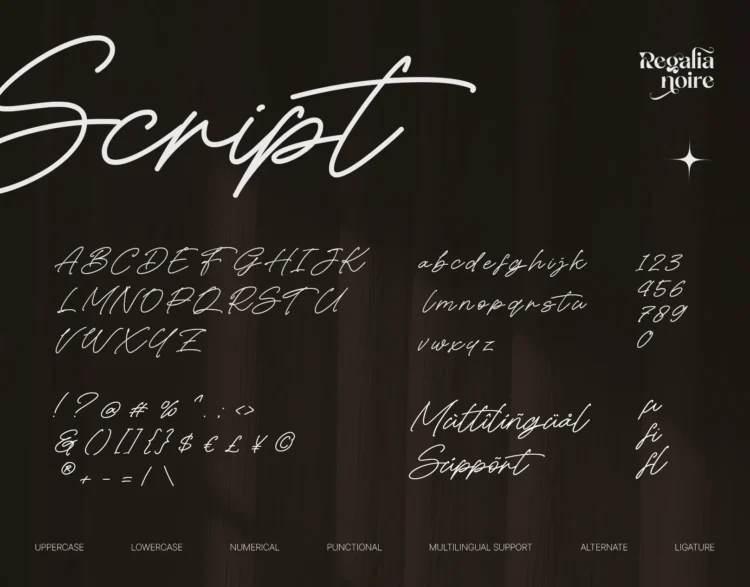 Script
Regalia
noire
A B C D E F G H I J K
L M N O P Q R S T U
V W X Y Z
a b c d e f g h i j k
l m n o p q r s t u
v w x y z
1 2 3
4 5 6
7 8 9
0
! ? @ # % ^ . ; < >
& ( ) [ ] { } $ € £ ¥ ©
® + - = / \
Mültîlîngüål
Süppört
fi
fl
UPPERCASE
LOWERCASE
NUMERICAL
PUNCTIONAL
MULTILINGUAL SUPPORT
ALTERNATE
LIGATURE